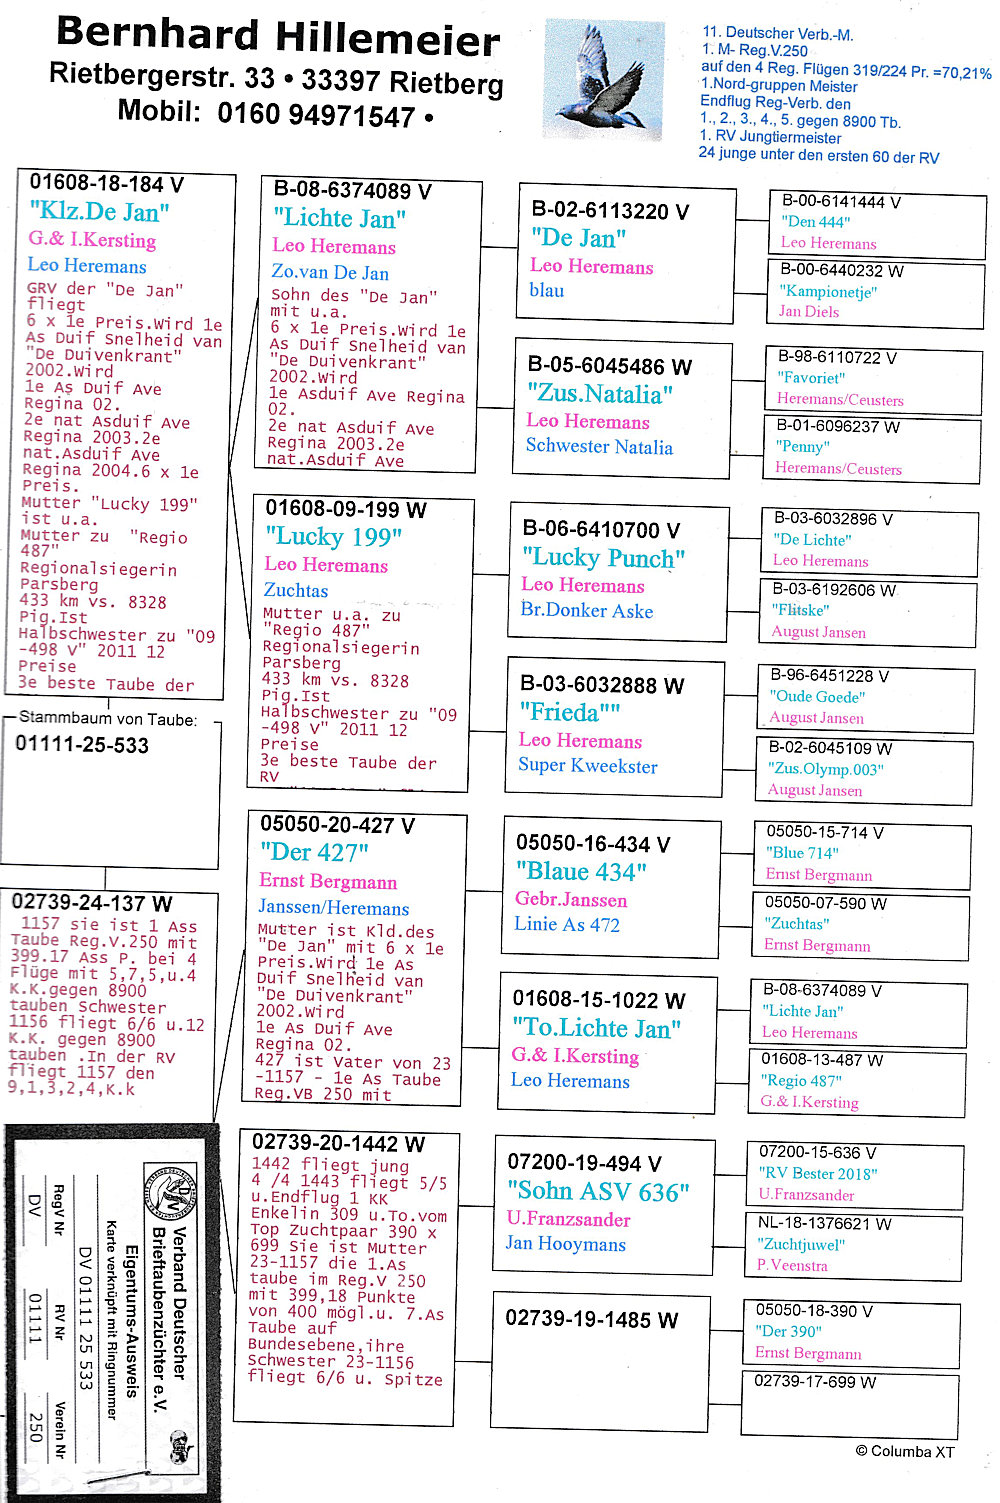 Bernhard Hillemeier
Rietbergerstr. 33 • 33397 Rietberg
Mobil:  0160 94971547 •
11. Deutscher Verb.-M.
1. M- Reg.V.250
auf den 4 Reg. Flügen 319/224 Pr. =70,21%
1.Nord-gruppen Meister
Endflug Reg-Verb. den
1., 2., 3., 4., 5. gegen 8900 Tb.
1. RV Jungtiermeister
24 junge unter den ersten 60 der RV
01608-18-184 V
"Klz.De Jan"
G.& I.Kersting
Leo Heremans
GRV der "De Jan"
fliegt
6 x 1e Preis.Wird 1e
As Duif Snelheid van
"De Duivenkrant"
2002.Wird
1e As Duif Ave
Regina 02.
2e nat Asduif Ave
Regina 2003.2e
nat.Asduif Ave
Regina 2004.6 x 1e
Preis.
Mutter "Lucky 199"
ist u.a.
Mutter zu  "Regio
487"
Regionalsiegerin
Parsberg
433 km vs. 8328
Pig.Ist
Halbschwester zu "09
-498 V" 2011 12
Preise
3e beste Taube der
Stammbaum von Taube:
01111-25-533
02739-24-137 W
1157 sie ist 1 Ass
Taube Reg.V.250 mit
399.17 Ass P. bei 4
Flüge mit 5,7,5,u.4
K.K.gegen 8900
tauben Schwester
1156 fliegt 6/6 u.12
K.K. gegen 8900
tauben .In der RV
fliegt 1157 den
9,1,3,2,4,K.k
Verband Deutscher
Brieftaubenzüchter e.V.
Eigentums-Ausweis
Karte verknüpft mit Ringnummer
DV 01111 25 533
RegV Nr
RV Nr
Verein Nr
DV
01111
250
B-08-6374089 V
"Lichte Jan"
Leo Heremans
Zo.van De Jan
Sohn des "De Jan"
mit u.a.
6 x 1e Preis.Wird 1e
As Duif Snelheid van
"De Duivenkrant"
2002.Wird
1e Asduif Ave Regina
02.
2e nat Asduif Ave
Regina 2003.2e
nat.Asduif Ave
01608-09-199 W
"Lucky 199"
Leo Heremans
Zuchtas
Mutter u.a. zu
"Regio 487"
Regionalsiegerin
Parsberg
433 km vs. 8328
Pig.Ist
Halbschwester zu "09
-498 V" 2011 12
Preise
3e beste Taube der
RV
05050-20-427 V
"Der 427"
Ernst Bergmann
Janssen/Heremans
Mutter ist Kld.des
"De Jan" mit 6 x 1e
Preis.Wird 1e As
Duif Snelheid van
"De Duivenkrant"
2002.Wird
1e As Duif Ave
Regina 02.
427 ist Vater von 23
-1157 - 1e As Taube
Reg.VB 250 mit
02739-20-1442 W
1442 fliegt jung
4 /4 1443 fliegt 5/5
u.Endflug 1 KK
Enkelin 309 u.To.vom
Top Zuchtpaar 390 x
699 Sie ist Mutter
23-1157 die 1.As
taube im Reg.V 250
mit 399,18 Punkte
von 400 mögl.u. 7.As
Taube auf
Bundesebene,ihre
Schwester 23-1156
fliegt 6/6 u. Spitze
B-02-6113220 V
"De Jan"
Leo Heremans
blau
B-05-6045486 W
"Zus.Natalia"
Leo Heremans
Schwester Natalia
B-06-6410700 V
"Lucky Punch"
Leo Heremans
Br.Donker Aske
B-03-6032888 W
"Frieda""
Leo Heremans
Super Kweekster
05050-16-434 V
"Blaue 434"
Gebr.Janssen
Linie As 472
01608-15-1022 W
"To.Lichte Jan"
G.& I.Kersting
Leo Heremans
07200-19-494 V
"Sohn ASV 636"
U.Franzsander
Jan Hooymans
02739-19-1485 W
B-00-6141444 V
"Den 444"
Leo Heremans
B-00-6440232 W
"Kampionetje"
Jan Diels
B-98-6110722 V
"Favoriet"
Heremans/Ceusters
B-01-6096237 W
"Penny"
Heremans/Ceusters
B-03-6032896 V
"De Lichte"
Leo Heremans
B-03-6192606 W
"Flitske"
August Jansen
B-96-6451228 V
"Oude Goede"
August Jansen
B-02-6045109 W
"Zus.Olymp.003"
August Jansen
05050-15-714 V
"Blue 714"
Ernst Bergmann
05050-07-590 W
"Zuchtas"
Ernst Bergmann
B-08-6374089 V
"Lichte Jan"
Leo Heremans
01608-13-487 W
"Regio 487"
G.& I.Kersting
07200-15-636 V
"RV Bester 2018"
U.Franzsander
NL-18-1376621 W
"Zuchtjuwel"
P.Veenstra
05050-18-390 V
"Der 390"
Ernst Bergmann
02739-17-699 W
© Columba XT